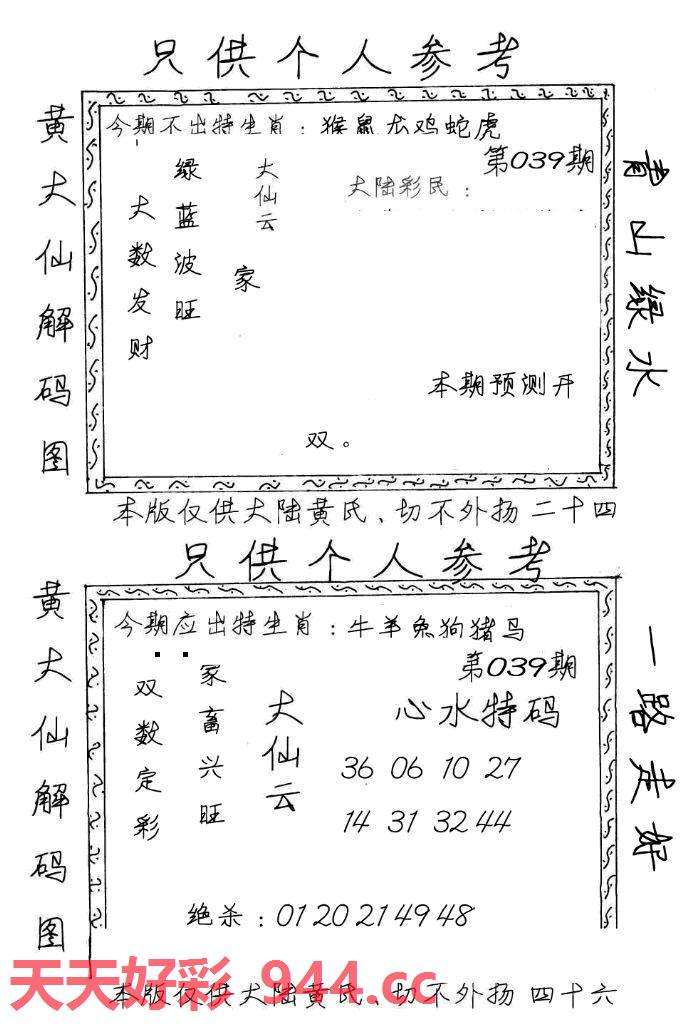 只供个人参考
黄大仙解码图
今期不出特生肖：猴鼠龙鸡蛇虎
第039期
大陆彩民：
大仙云
家
绿蓝波旺
大数发财
本期预测开
双。
青山绿水
本版仅供大陆黄氏、切不外扬二十四
只供个人参考
黄大仙解码图
今期应出特生肖：牛羊兔狗猪马
第039期
双数定彩
家畜兴旺
大仙云
心水特码
36 06 10 27
14 31 32 44
绝杀：01 20 21 49 48
一路走好
本版仅供大陆黄氏、切不外扬 四十六
天天好彩 944.cc